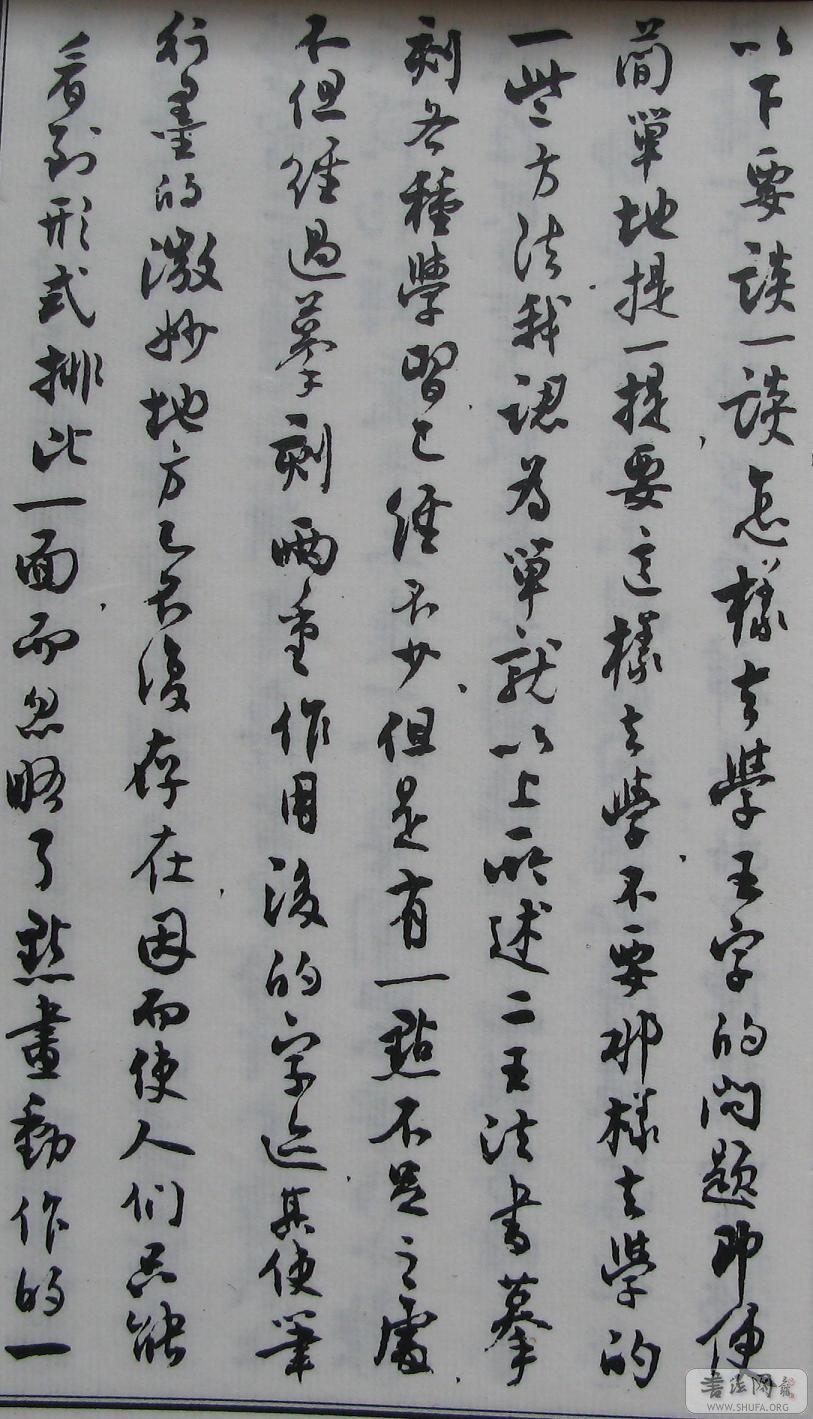 以下要談一談怎樣去學王字的問題即使
簡單地提一提,要這樣去學,不要那樣去學的
一些方法.我認為單就以上所述二王法書摹
刻各種學習,已經不少,但是有一點不足之處,
不但經過摹刻兩重作用後的字迹,其使筆
行墨的微妙地方已不復存在,因而使人们只能
看到形式排比一面,而忽略了點畫動作的一
書法网
WWW.SHUFA.ORG